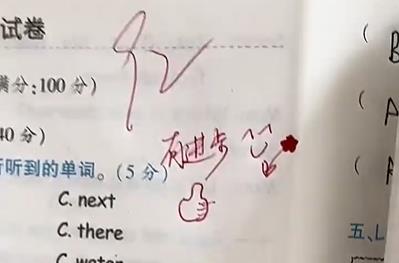 试卷
满分:100 分)
40 分)
有进步
听到的单词。(5 分)
C. next
C. there
C. water
(
B
(
A
(
五、L